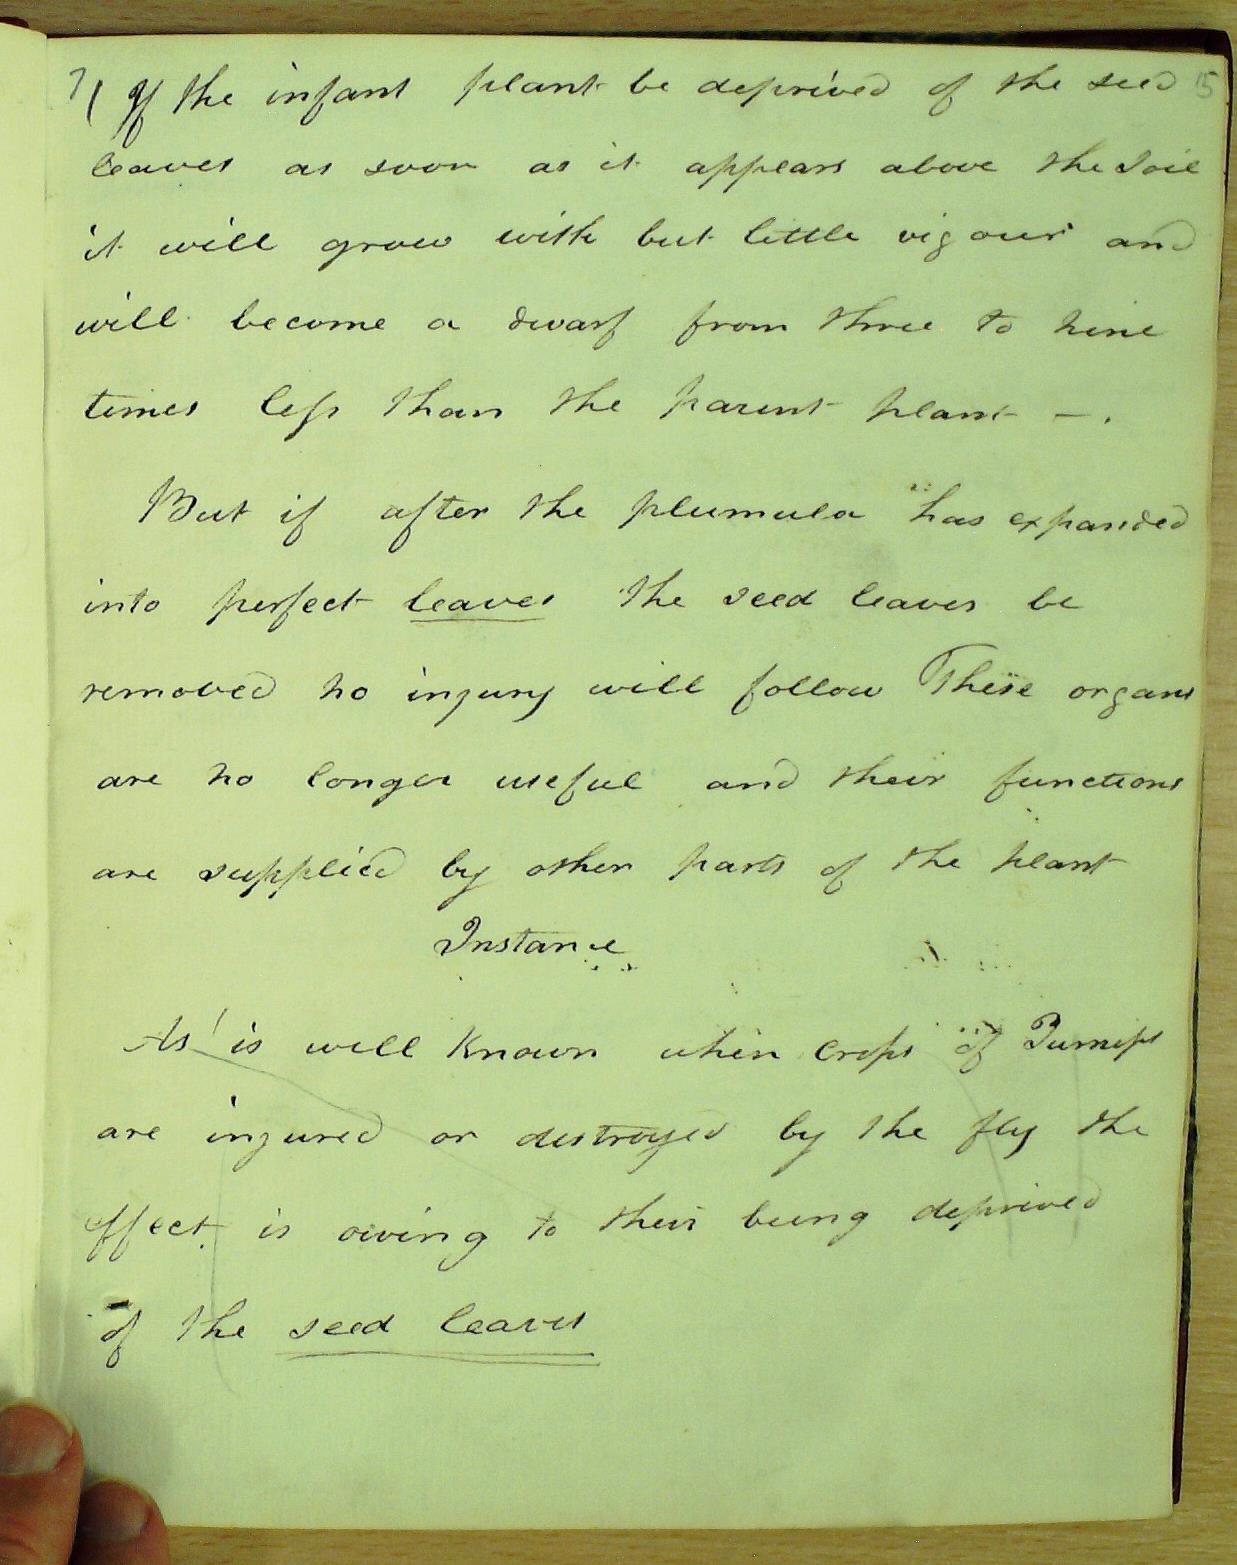 7/ If the infant plant be deprived of the seed 15
leaves as soon as it appears above the Soil
it will grow with but little vigour and
will become a dwarf from three to nine
times less than the parent plant — .
But if after the plumula has expanded
into perfect leaves the seed leaves be
removed no injury will follow These organs
are no longer useful and their functions
are supplied by other parts of the plant
Instance
As is well known when crops of Turnips
are injured or destroyed by the fly the
effect is owing to their being deprived
of the seed leaves